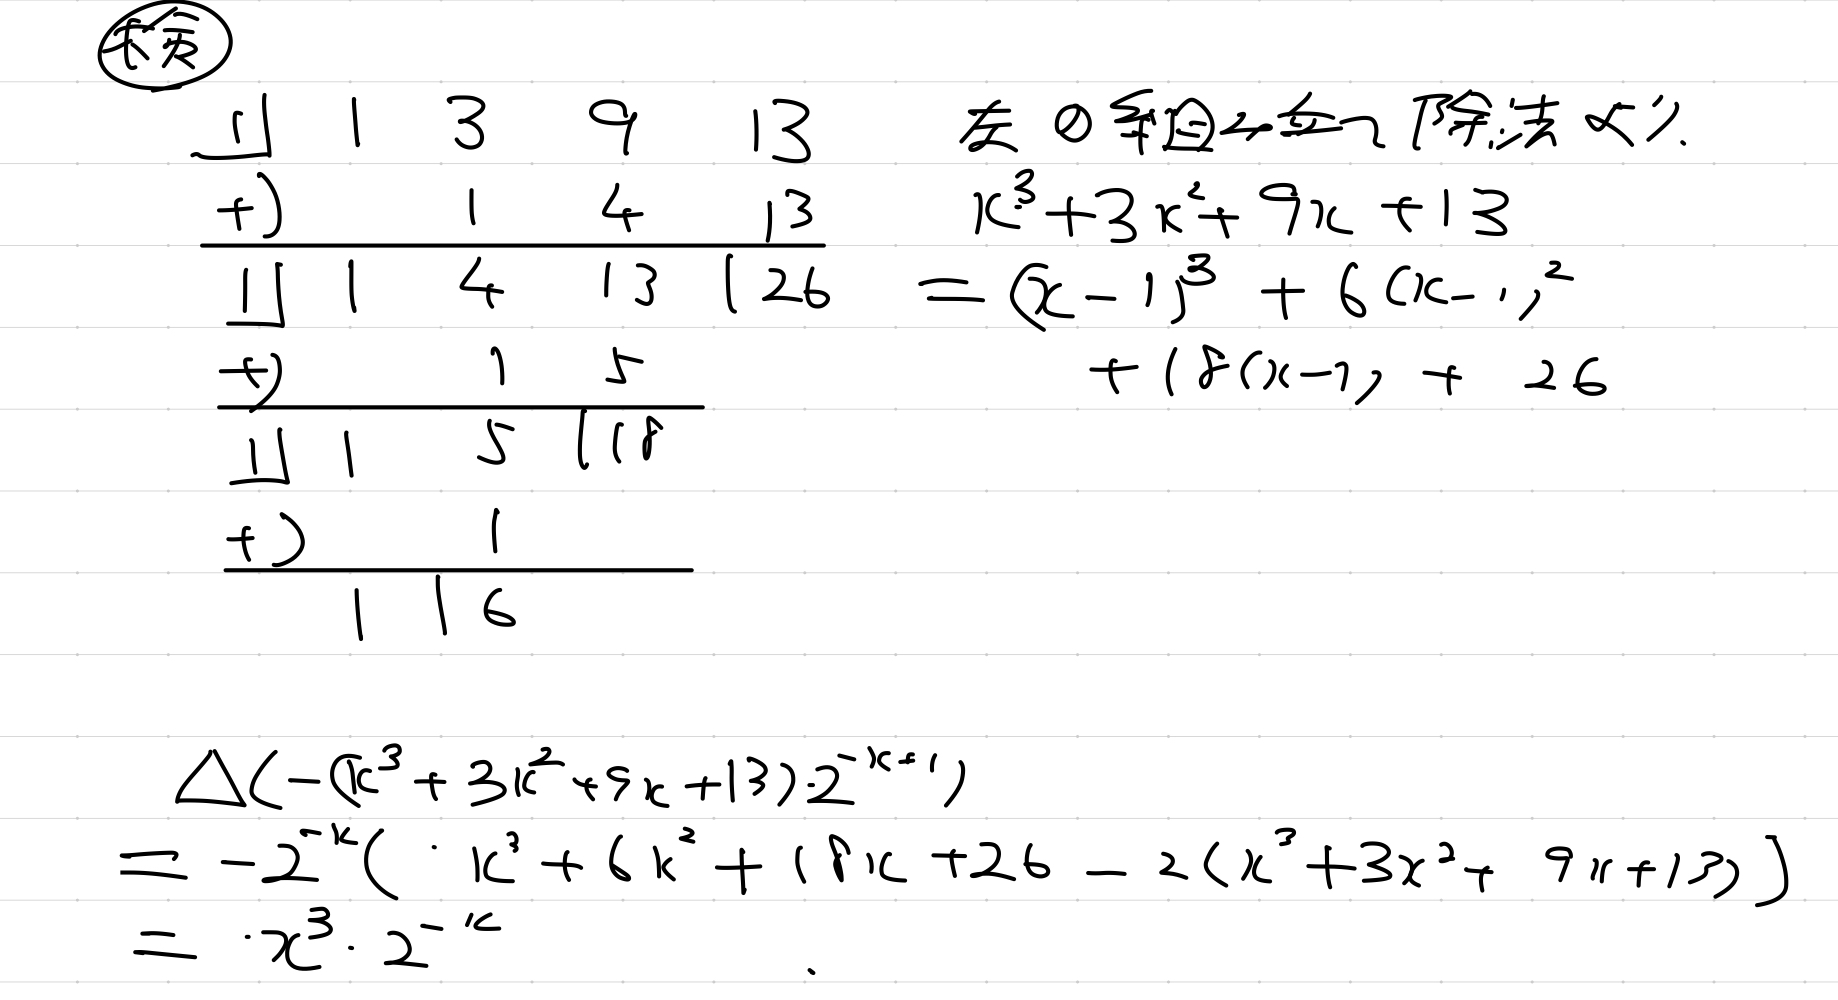 検算
1 | 1 3 9 13
+) 1 4 13
1 | 1 4 13 | 26
+) 1 5
1 | 1 5 | 18
+) 1
1 | 6
左の組立除法より.
x³+3x²+9x+13
=(x-1)³+6(x-1)²
+18(x-1)+26
△(-(x³+3x²+9x+13)·2^{-x+1})
=-2^{-x}(x³+6x²+18x+26-2(x³+3x²+9x+13))
=·x³·2^{-x}